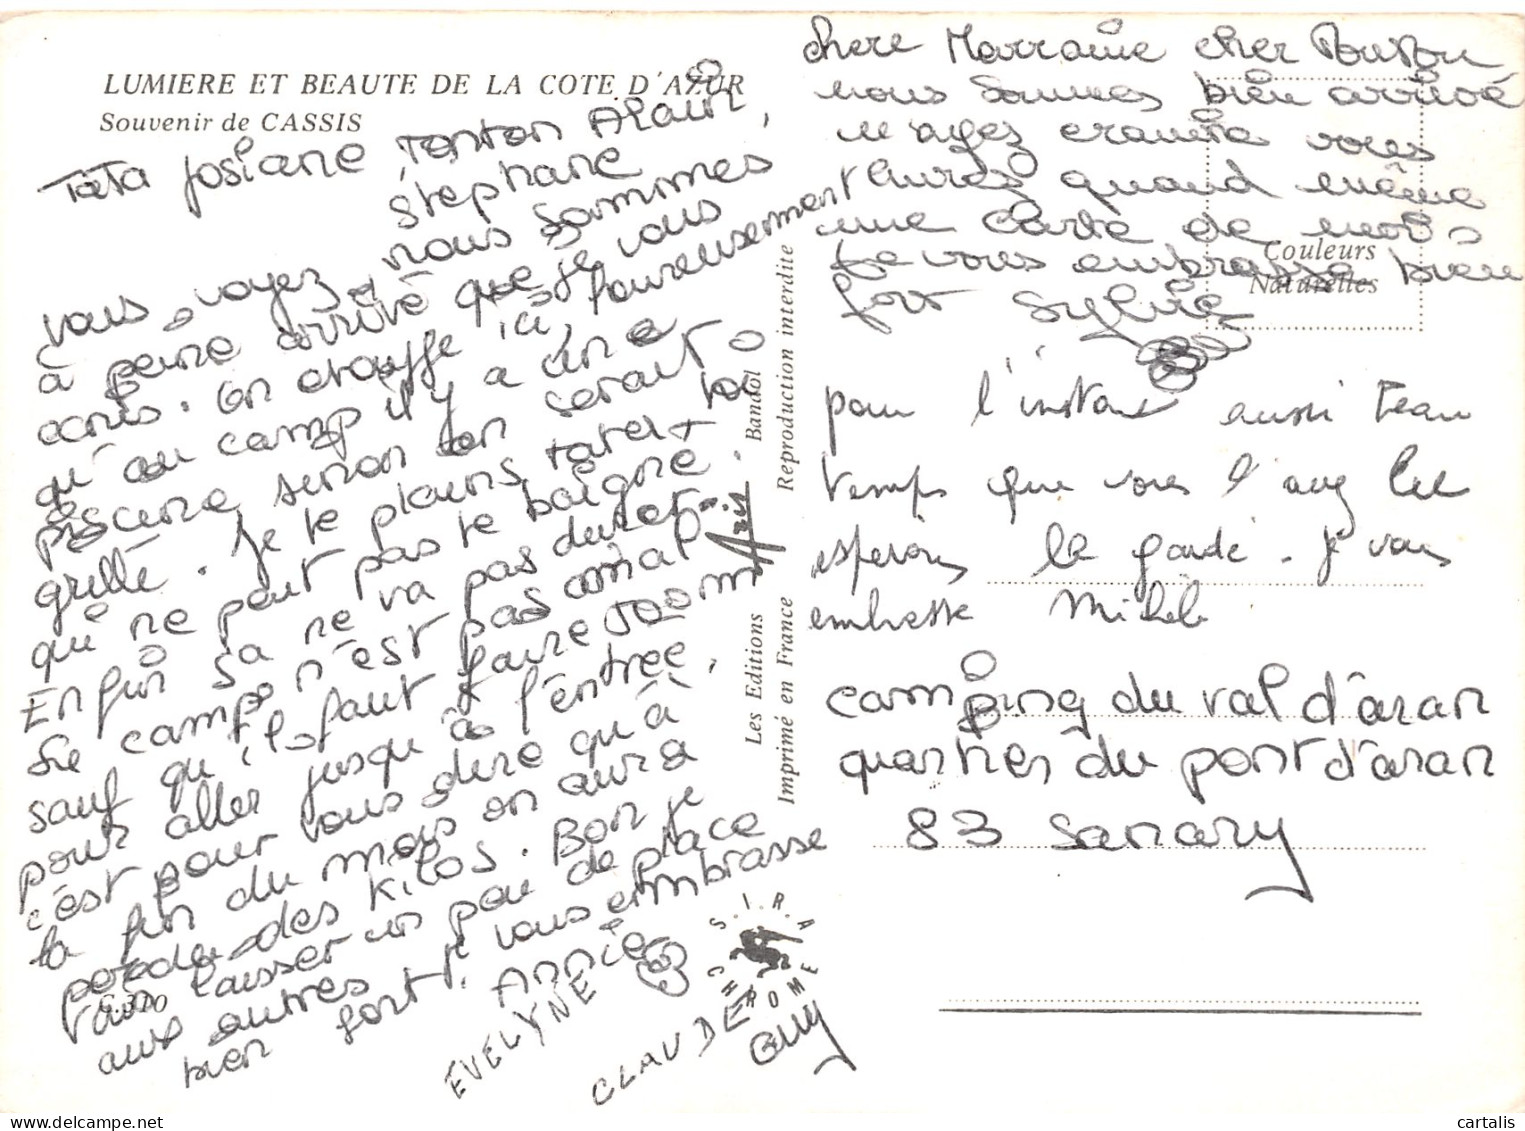 LUMIERE ET BEAUTE DE LA COTE D'AZUR
Souvenir de CASSIS
Tata Josiane Tonton Alain,
Stephane
vous voyez, nous sommes
à peine arrivé que je vous
écris. On chauffe ici, heureusement
qu'au camp il y a une
piscine sinon on serait
grillé. Je te plains tata toi
qui ne peut pas te baigné.
Enfin sa ne va pas durer.
Le camp n'est pas mal
sauf qu'il faut faire 500 m
pour aller jusqu'à l'entrée,
c'est pour vous dire qu'à
la fin du mois on aura
perdu des kilos. Bon je
vais laisser un peu de place
aux autres. Je vous embrasse
bien fort
Annie
EVELYNE
CLAUDE
Guy
6.310
S.I.R.A
CHROME
Les Editions Bandol
Imprimé en France Reproduction interdite
Couleurs
Naturelles
chere Marraine cher Tonton
nous sommes bien arrivé
n'ayez crainte vous
aurez quand même
une carte de moi
je vous embrasse bien
fort Sylvie
pour l'instant aussi beau
temps que vous l'avez
esperons le garde. Je vous
embrasse Michele
camping du val d'aran
quartier du pont d'aran
83 Sanary
cartalis.com